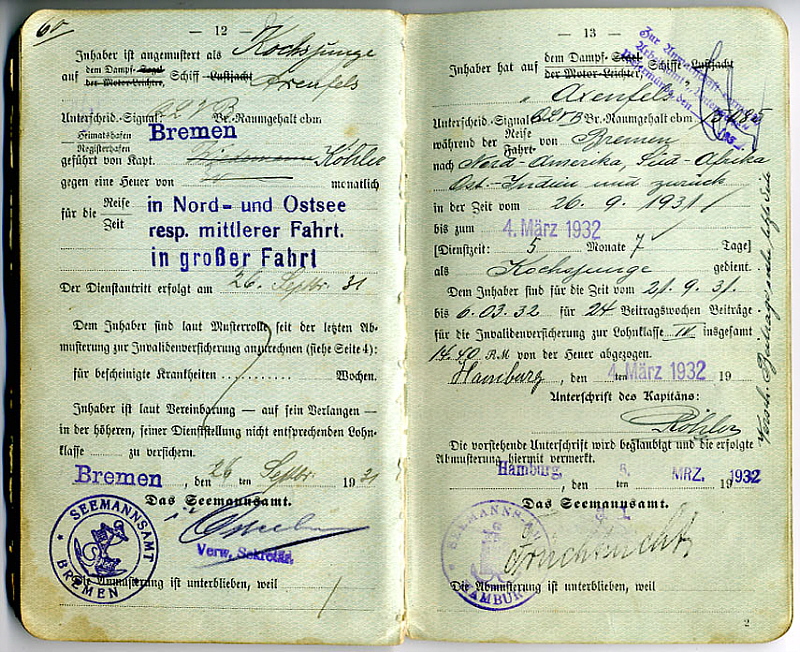 60
— 12 —
Inhaber ist angemustert als Kochsjunge
auf dem Dampf- Segel Schiff Lustjacht Arenfels
der Motor-Leichter,
Unterscheid.-Signal QLVB Br.-Raumgehalt cbm
Heimatshafen Bremen
Registerhafen
geführt von Kapt. Köhler
gegen eine Heuer von monatlich
für die Reise in Nord- und Ostsee
Zeit resp. mittlerer Fahrt.
in großer Fahrt
Der Dienstantritt erfolgt am 26. Septbr. 31
Dem Inhaber sind laut Musterrolle seit der letzten Ab-
musterung zur Invalidenversicherung anzurechnen (siehe Seite 4):
für bescheinigte Krankheiten .......... Wochen.
Inhaber ist laut Vereinbarung — auf sein Verlangen —
in der höheren, seiner Dienststellung nicht entsprechenden Lohn-
klasse zu versichern.
Bremen, den 26 ten Septbr. 1931
Das Seemannsamt.
Verw. Sekretär.
SEEMANNSAMT BREMEN
Die Anmusterung ist unterblieben, weil
— 13 —
Inhaber hat auf dem Dampf- Segel Schiff Lustjacht
der Motor-Leichter,
Arenfels
Unterscheid.-Signal QLVB Br.-Raumgehalt cbm 15085
während der Reise von Bremen
Fahrt
nach Nord-Amerika, Süd-Afrika
Ost-Indien und zurück
in der Zeit vom 26. 9. 1931
bis zum 4. März 1932
[Dienstzeit: 5 Monate 7 Tage]
als Kochsjunge gedient.
Dem Inhaber sind für die Zeit vom 21. 9. 31.
bis 6.03.32 für 24 Beitragswochen Beiträge
für die Invalidenversicherung zur Lohnklasse IV insgesamt
14.40 RM von der Heuer abgezogen.
Hamburg, den 4. März 1932 ten 19
Unterschrift des Kapitäns:
Köhler
Die vorstehende Unterschrift wird beglaubigt und die erfolgte
Abmusterung hiermit vermerkt.
Hamburg, den 6. ten MRZ. 1932
Das Seemannsamt.
SEEMANNSAMT HAMBURG
Die Abmusterung ist unterblieben, weil
2
Versch. Beiträge siehe letzte Seite